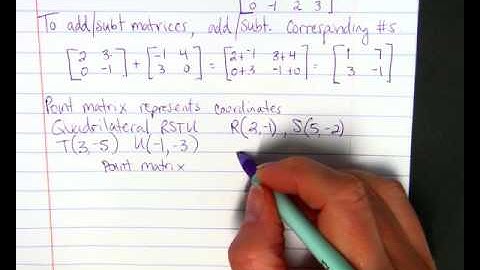 0 -1 2 3
To add/subt matrices, add/subt. Corresponding #s
[2 3 0 -1] + [-1 4 3 0] = [2+-1 3+4 0+3 -1+0] = [1 7 3 -1]
Point matrix represents coordinates
Quadrilateral RSTU R(2,-1), S(5,-2)
T(3,-5) U(-1,-3)
Point matrix